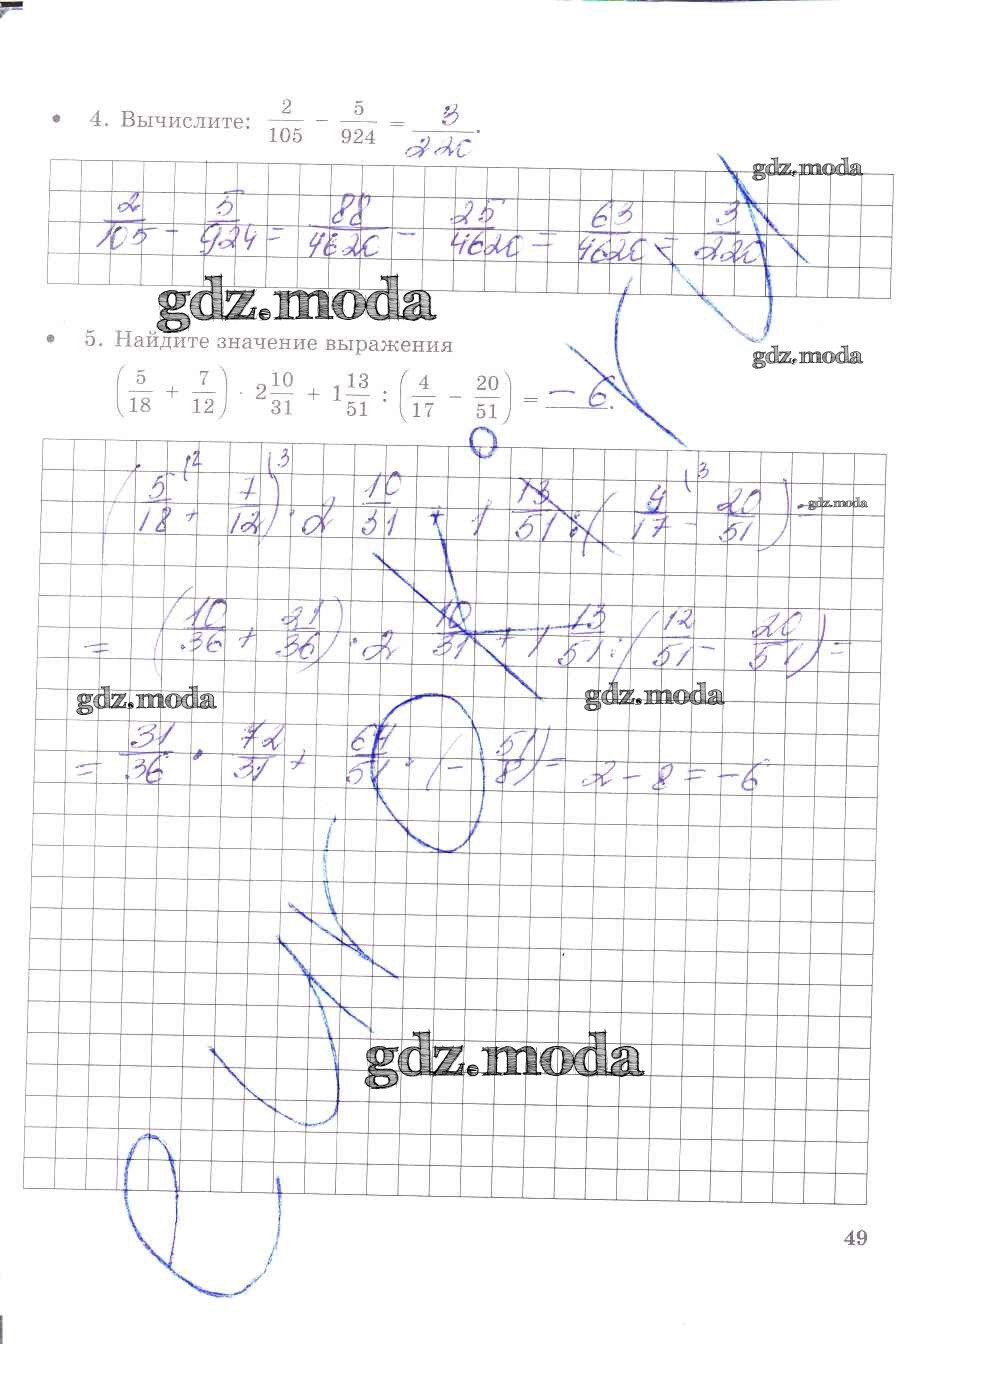 • 4. Вычислите: 2/105 − 5/924 = 3/220.
gdz.moda
2/105 − 5/924 = 88/4620 − 25/4620 = 63/4620 = 3/220
gdz.moda
• 5. Найдите значение выражения
gdz.moda
(5/18 + 7/12) · 2 10/31 + 1 13/51 : (4/17 − 20/51) = − 6.
(5/18 + 7/12) · 2 10/31 + 1 13/51 : (4/17 − 20/51) =
gdz.moda
= (10/36 + 21/36) · 2 10/31 + 1 13/51 : (12/51 − 20/51) =
gdz.moda gdz.moda
= 31/36 · 72/31 + 64/51 · (− 51/8) = 2 − 8 = −6
gdz.moda
49